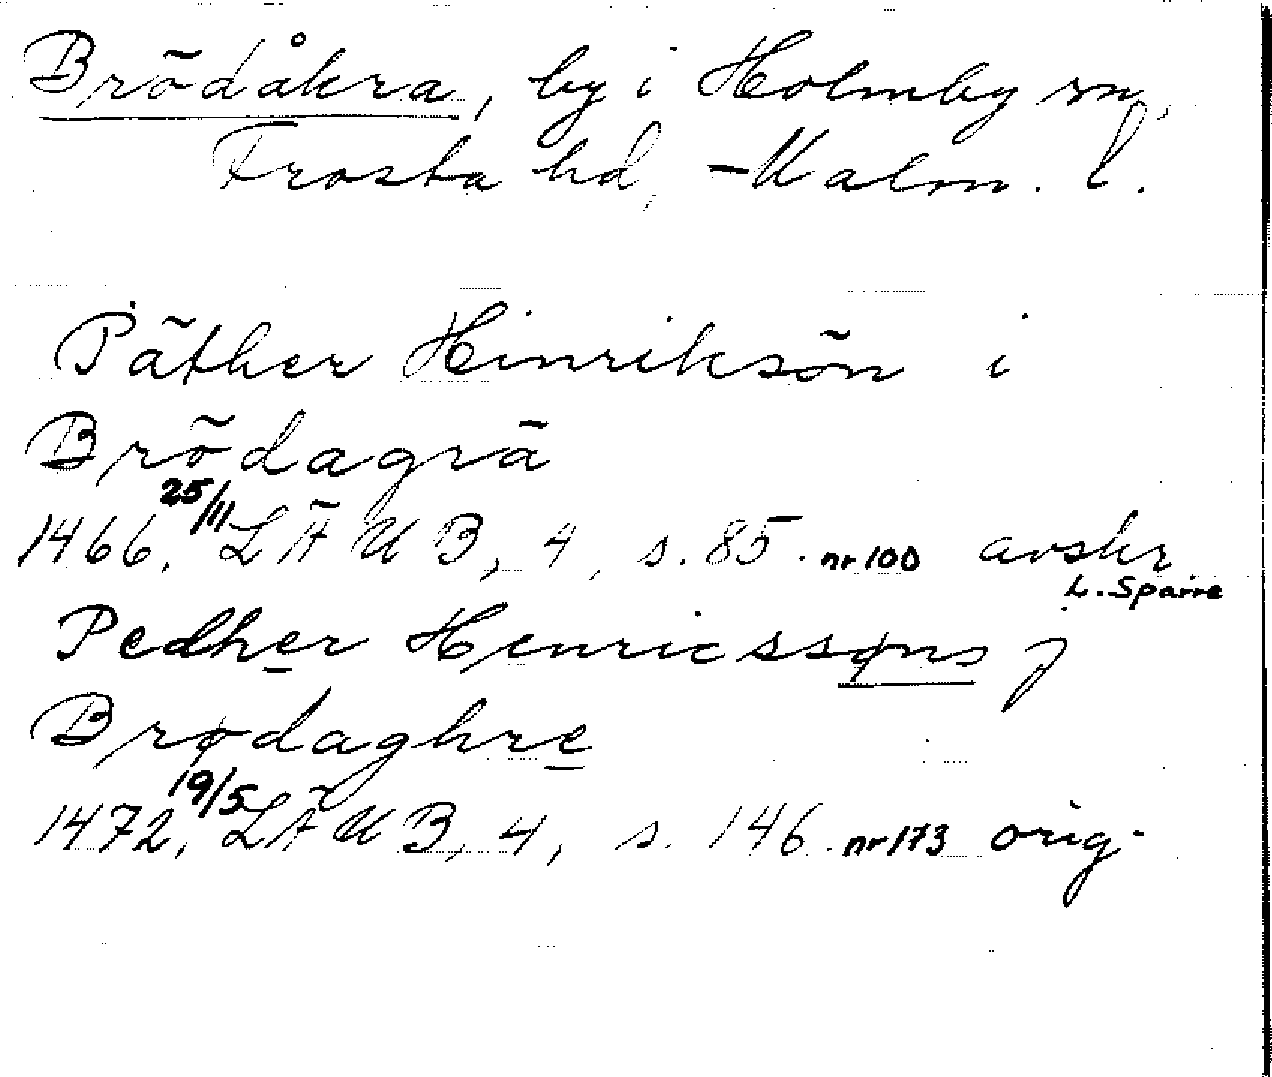 Brödåkra, by i Holmby sn,
Frosta hd, Malm. l.
Päther Hinriksön i
Brödagrä
1466, 25/11 LÄUB, 4, s. 85. nr 100 avskr
L. Sparre
Pedher Henricssøns j
Brødaghre
1472, 19/5 LÄUB, 4, s. 146. nr 173 orig.